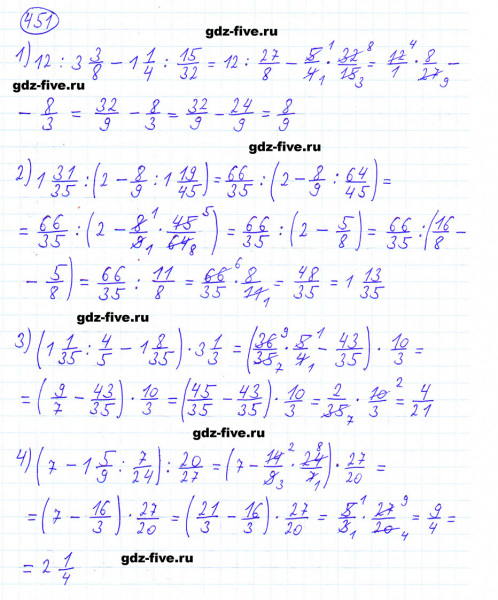 451
gdz-five.ru
1) 12 : 3 3/8 − 1 1/4 : 15/32 = 12 : 27/8 − 5/4 · 32/15 = 12/1 · 8/27 −
gdz-five.ru
− 8/3 = 32/9 − 8/3 = 32/9 − 24/9 = 8/9
gdz-five.ru
2) 1 31/35 : (2 − 8/9 : 1 19/45) = 66/35 : (2 − 8/9 : 64/45) =
= 66/35 : (2 − 8/9 · 45/64) = 66/35 : (2 − 5/8) = 66/35 : (16/8 −
− 5/8) = 66/35 : 11/8 = 66/35 · 8/11 = 48/35 = 1 13/35
gdz-five.ru
3) (1 1/35 : 4/5 − 1 8/35) · 3 1/3 = (36/35 · 5/4 − 43/35) · 10/3 =
= (9/7 − 43/35) · 10/3 = (45/35 − 43/35) · 10/3 = 2/35 · 10/3 = 4/21
gdz-five.ru
4) (7 − 1 5/9 : 7/24) : 20/27 = (7 − 14/9 · 24/7) · 27/20 =
= (7 − 16/3) · 27/20 = (21/3 − 16/3) · 27/20 = 5/3 · 27/20 = 9/4 =
= 2 1/4
gdz-five.ru
gdz-five.ru